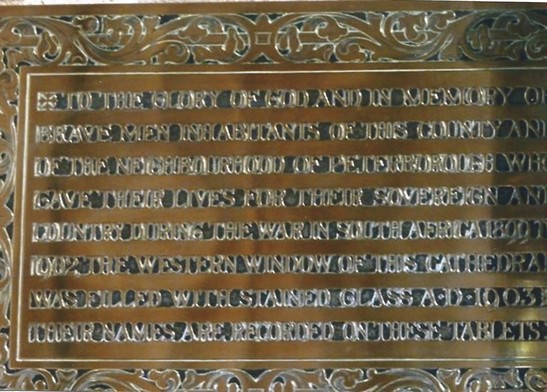 ✠ TO THE GLORY OF GOD AND IN MEMORY O
BRAVE MEN INHABITANTS OF THIS COUNTY AN
OF THE NEIGHBOURHOOD OF PETERBOROUGH WHO
GAVE THEIR LIVES FOR THEIR SOVEREIGN AN
COUNTRY DURING THE WAR IN SOUTH AFRICA 1899 T
1902 THE WESTERN WINDOW OF THIS CATHEDRA
WAS FILLED WITH STAINED GLASS A·D·1903
THEIR NAMES ARE RECORDED ON THESE TABLETS